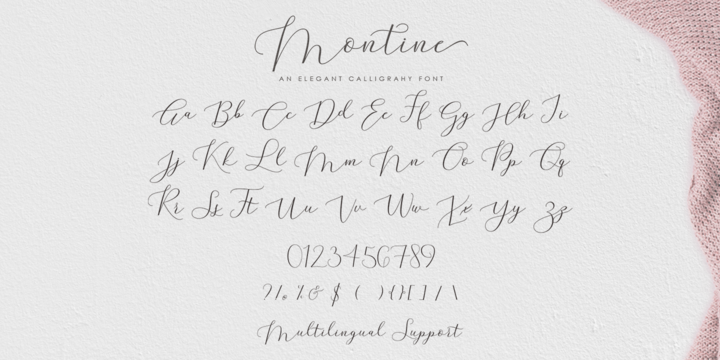 Montine
AN ELEGANT CALLIGRAHY FONT
Aa Bb Cc Dd Ee Ff Gg Hh Ii
Jj Kk Ll Mm Nn Oo Pp Qq
Rr Ss Tt Uu Vv Ww Xx Yy Zz
0123456789
? ! % & $ ( ) { } [ ] / \
Multilingual Support